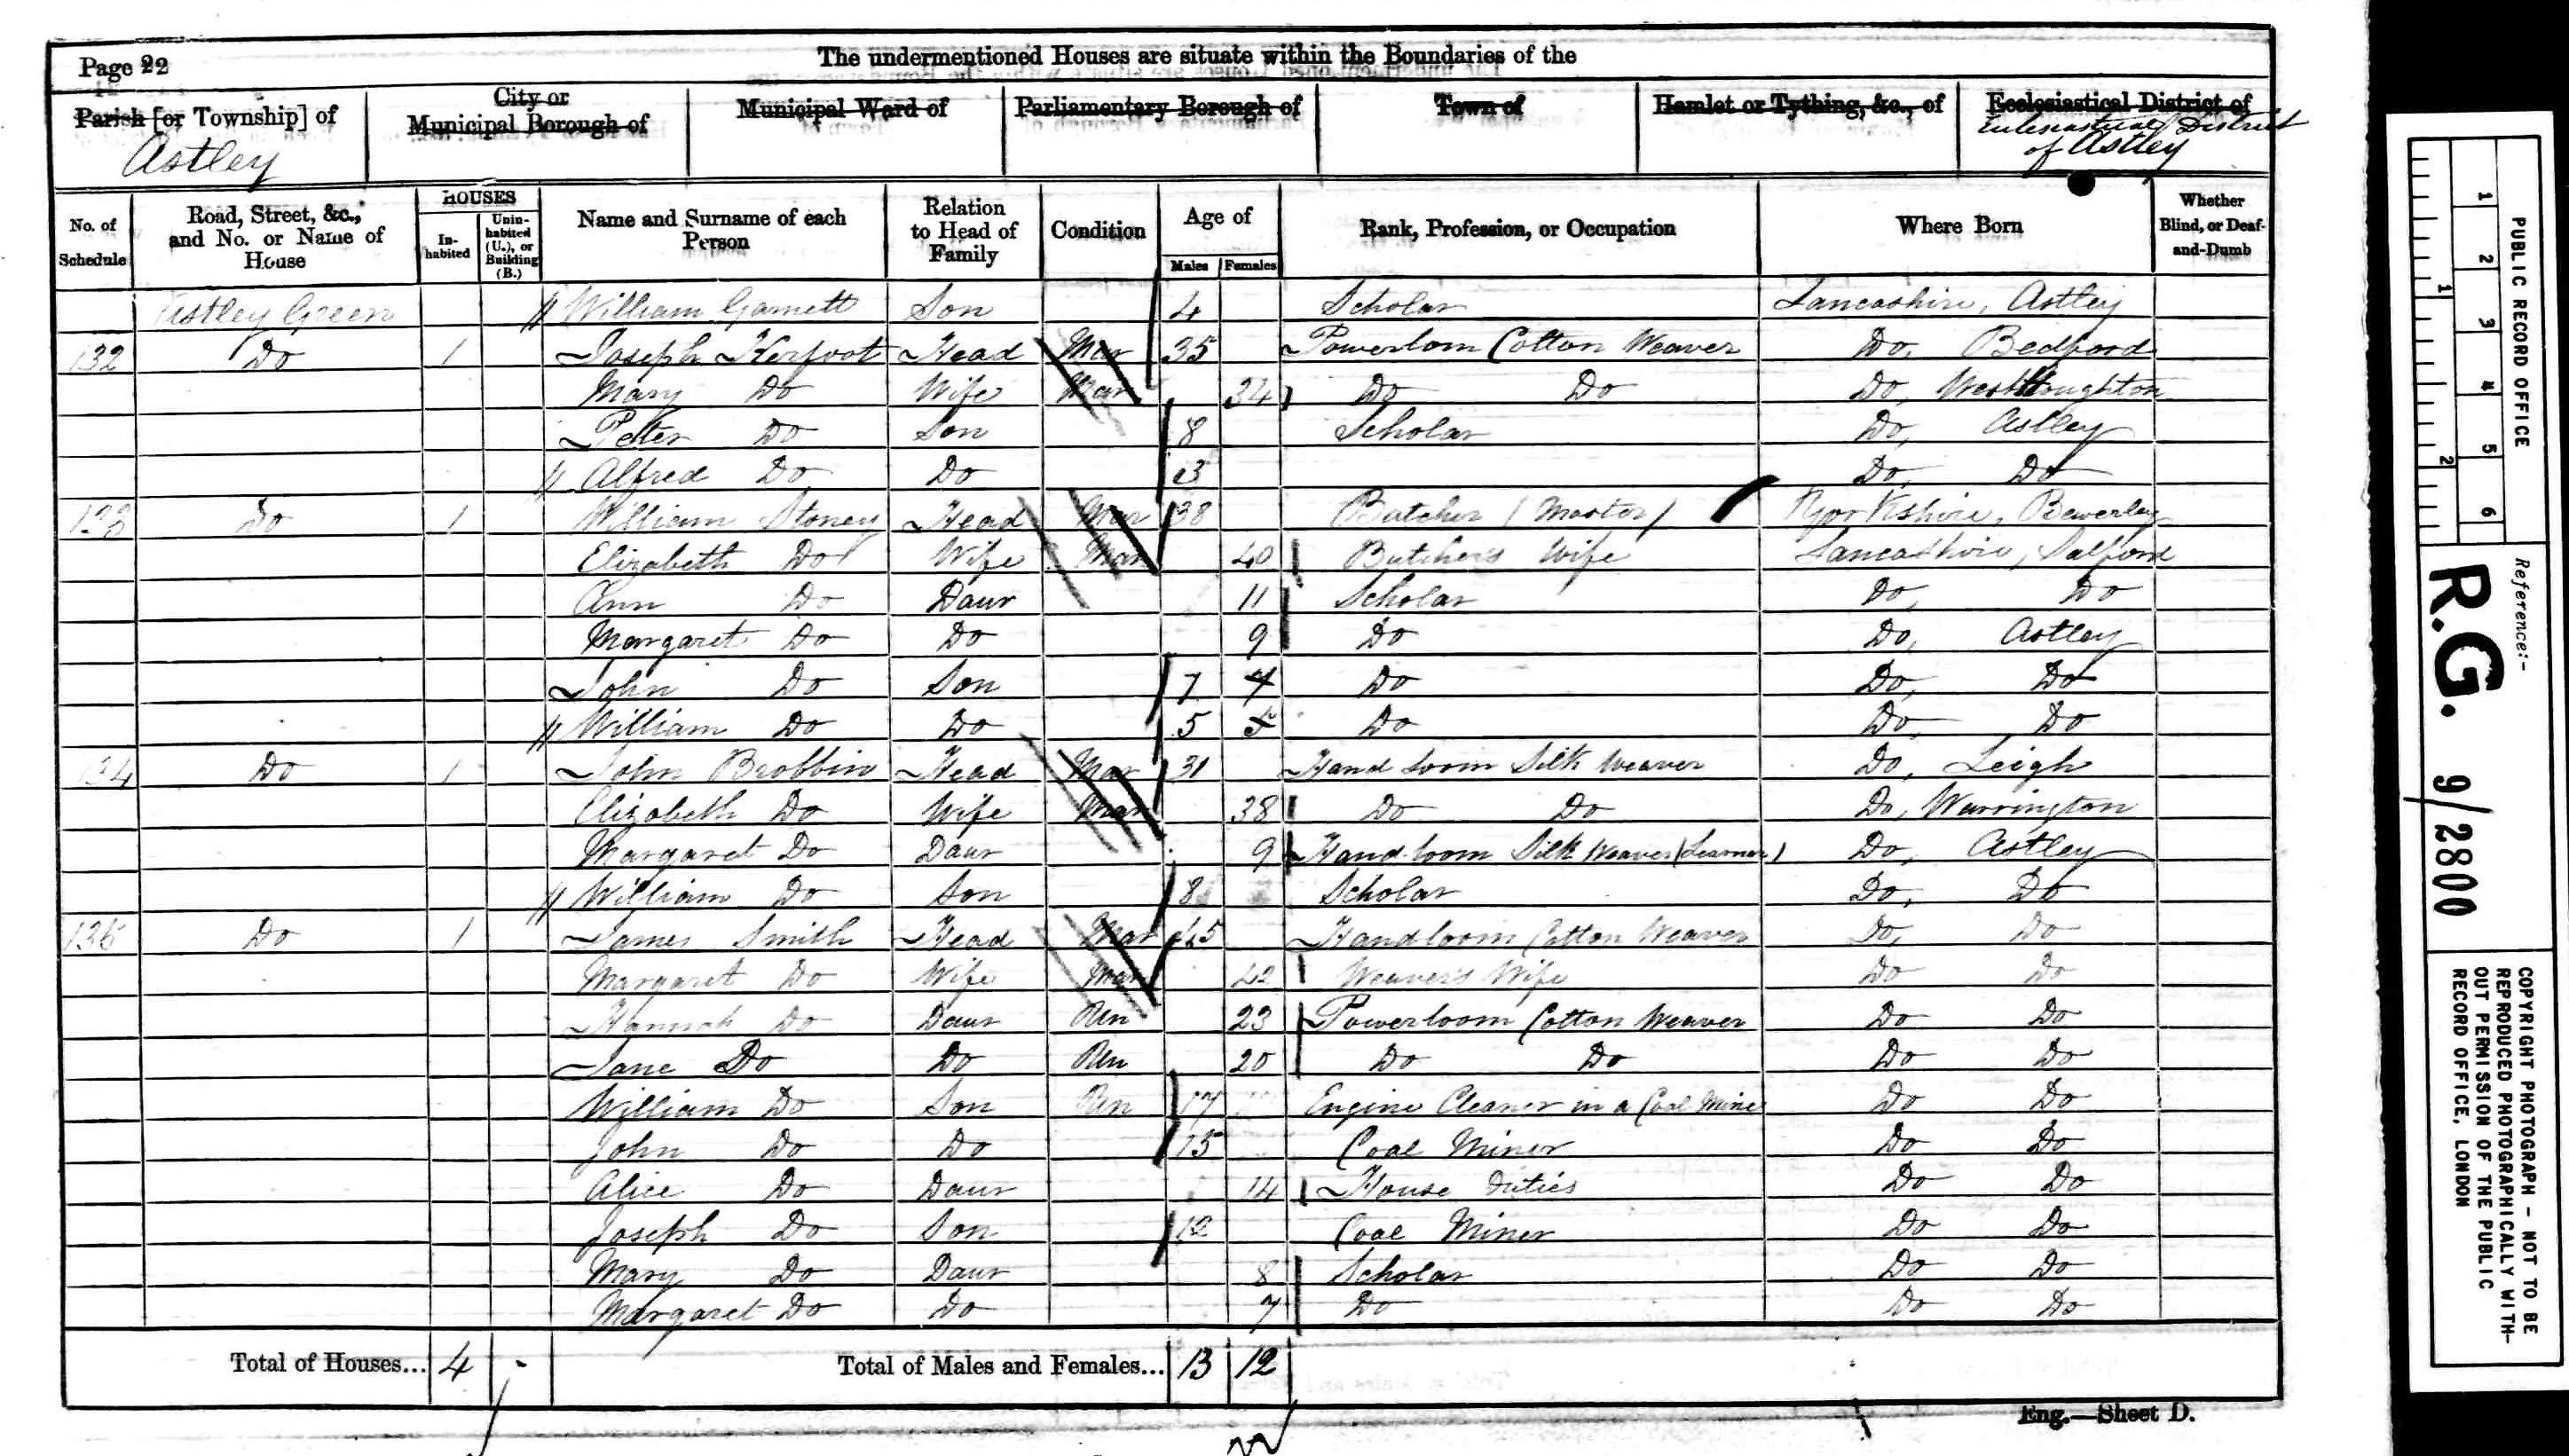 The undermentioned Houses are situate within the Boundaries of the
Page 22
Parish [or Township] of
Astley
City or
Municipal Borough of
Municipal Ward of
Parliamentary Borough of
Town of
Hamlet or Tything, &c., of
Ecclesiastical District of
Eclesiastical District
of Astley
No. of Schedule
Road, Street, &c., and No. or Name of House
HOUSES
In-habited
Unin-habited (U.), or Building (B.)
Name and Surname of each Person
Relation to Head of Family
Condition
Age of
Males Females
Rank, Profession, or Occupation
Where Born
Whether Blind, or Deaf-and-Dumb
Astley Green // William Garnett Son 4 Scholar Lancashire, Astley
132 Do 1 Joseph Kerfoot Head Mar 35 Powerloom Cotton Weaver Do, Bedford
Mary Do Wife Mar 34 Do Do Do, Westhoughton
Peter Do Son 8 Scholar Do, Astley
// Alfred Do Do 3 Do, Do
133 Do 1 William Stoney Head Mar 38 Butcher (Master) Yorkshire, Bewerley
Elizabeth Do Wife Mar 40 Butcher's Wife Lancashire, Salford
Ann Do Daur 11 Scholar Do, Do
Margaret Do Do 9 Do Do, Astley
John Do Son 7 Do Do, Do
// William Do Do 5 5 Do Do, Do
134 Do 1 John Brobbin Head Mar 31 Hand Loom Silk Weaver Do, Leigh
Elizabeth Do Wife Mar 38 Do Do Do, Warrington
Margaret Do Daur 9 Hand-loom Silk Weaver (Learner) Do, Astley
// William Do Son 8 Scholar Do, Do
135 Do 1 James Smith Head Mar 45 Handloom Cotton Weaver Do, Do
Margaret Do Wife Mar 42 Weaver's Wife Do Do
Hannah Do Daur Un 23 Powerloom Cotton Weaver Do Do
Jane Do Do Un 20 Do Do Do Do
William Do Son Un 17 Engine Cleaner in a Coal Mine Do Do
John Do Do 15 Coal Miner Do Do
Alice Do Daur 14 House duties Do Do
Joseph Do Son 12 Coal Miner Do Do
Mary Do Daur 8 Scholar Do Do
Margaret Do Do 7 Do Do Do
Total of Houses... 4 - Total of Males and Females... 13 12
Eng.—Sheet D.
1 2 3 4 5 6
1 2
PUBLIC RECORD OFFICE
Reference:-
R.G. 9/2800
COPYRIGHT PHOTOGRAPH - NOT TO BE
REPRODUCED PHOTOGRAPHICALLY WITH-
OUT PERMISSION OF THE PUBLIC
RECORD OFFICE, LONDON